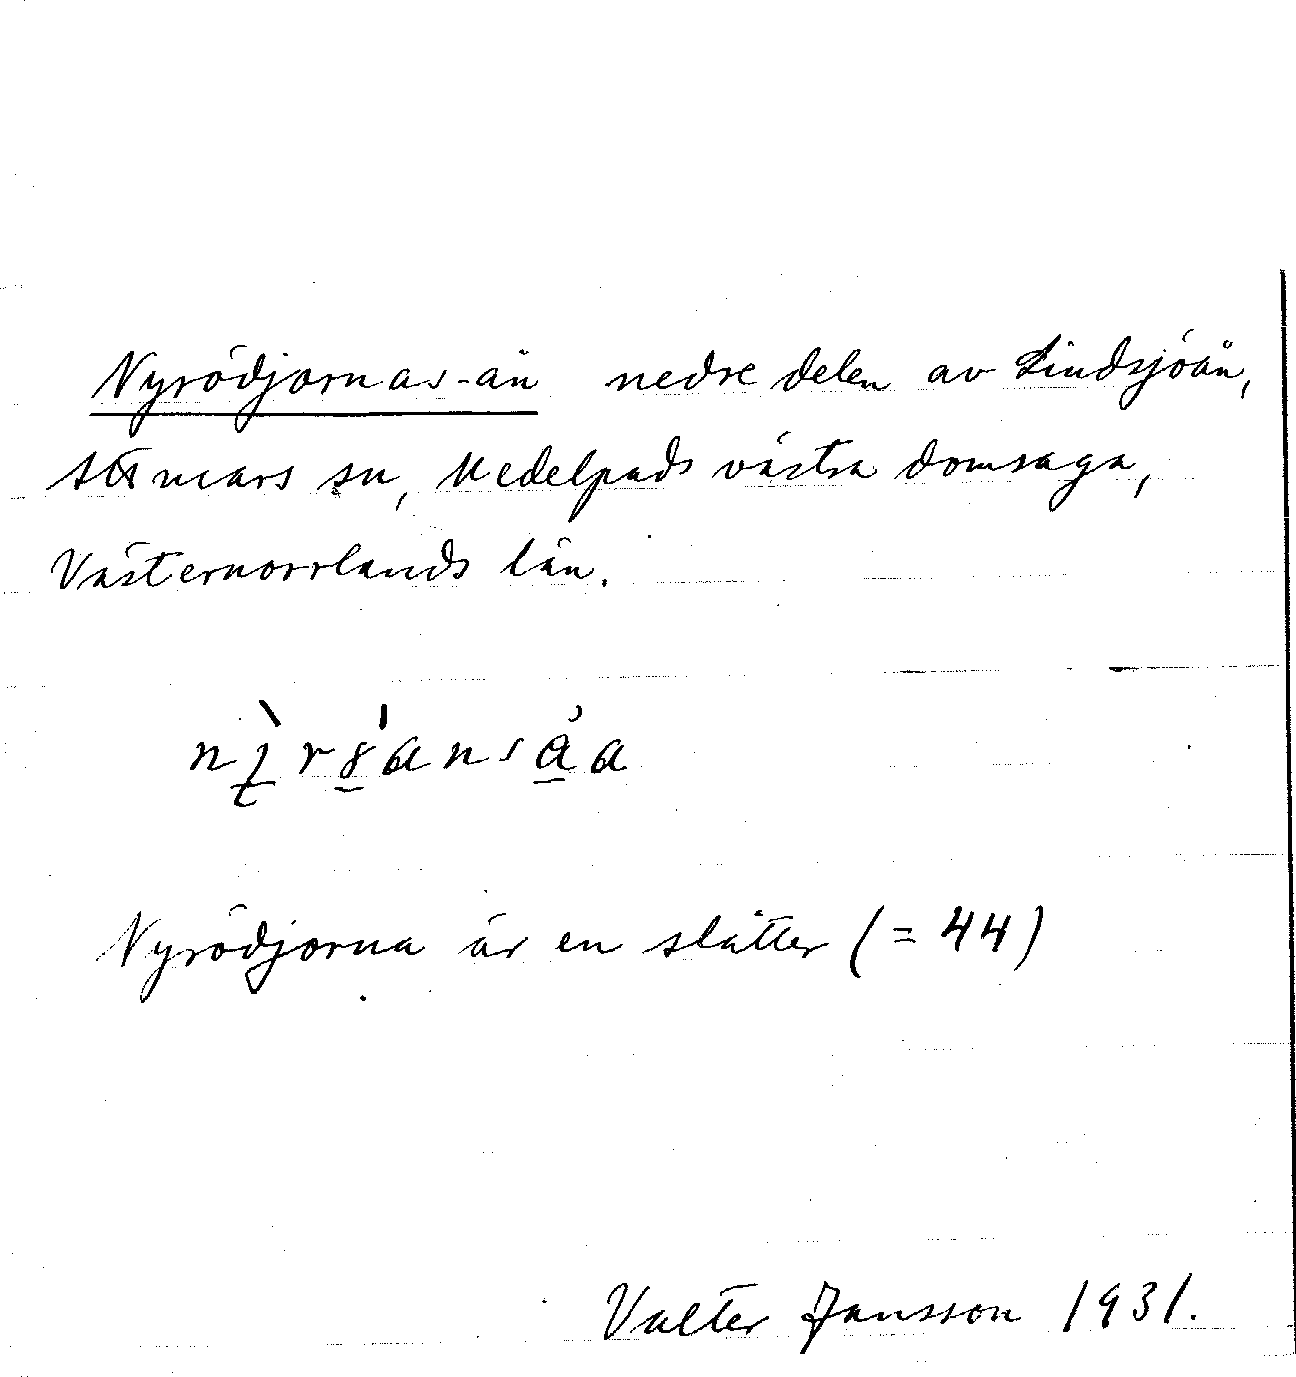 Nyrödjornas-ån nedre delen av Lindsjöån,
Attmars sn, Medelpads västra domsaga,
Västernorrlands län.
Nyrödjorna är en slåtter (= 44)
Valter Jansson 1931.